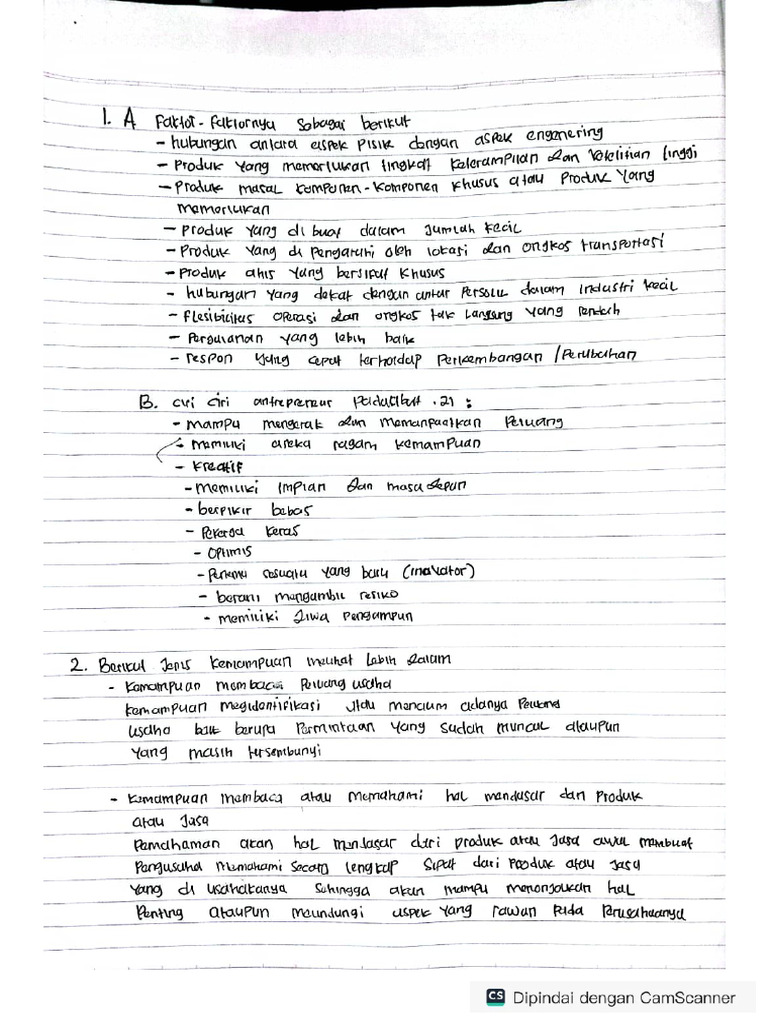 1. A Faktor-Faktornya sebagai berikut
- hubungan antara aspek pisik dengan aspek engenering
- Produk yang memerlukan tingkat keterampilan dan ketelitian tinggi
- Produk masal komponen-komponen khusus atau Produk yang
memerlukan
- Produk yang di buat dalam jumlah kecil
- Produk yang di pengaruhi oleh lokasi dan ongkos transportasi
- Produk yang bersifat khusus
- hubungan yang dekat dengan antar dalam industri kecil
- flesibicitas operasi dan ongkos tak langsung yang rendah
- yang lebih baik
- respon yang cepat terhadap Perkembangan / Perubahan
B. ciri ciri antrepreneur .21 :
- mampu mengerak dan memanpaatkan Peluang
- memiliki aneka ragam kemampuan
- kreatif
- memiliki impian dan masa depan
- berpikir bebas
- Pekerja keras
- Optimis
- sesuatu yang baru (inovator)
- berani mengambil resiko
- memiliki Jiwa Pengampun
2. Berikut Jenis Kemampuan melihat lebih dalam
- Kemampuan membaca Peluang usaha
Kemampuan megidentifikasi atau mencium adanya Peluang
usaha baik berupa Permintaan yang sudah muncul ataupun
yang masih tersembunyi
- Kemampuan membaca atau memahami hal mendasar dari Produk
atau Jasa
Pemahaman akan hal mendasar dari produk atau Jasa membuat
Pengusaha memahami secara lengkap sipat dari Produk atau Jasa
yang di usahakanya sehingga akan mampu menonjolkan hal
Penting ataupun meundungi aspek yang rawan Pada Perusahaanya
CS Dipindai dengan CamScanner